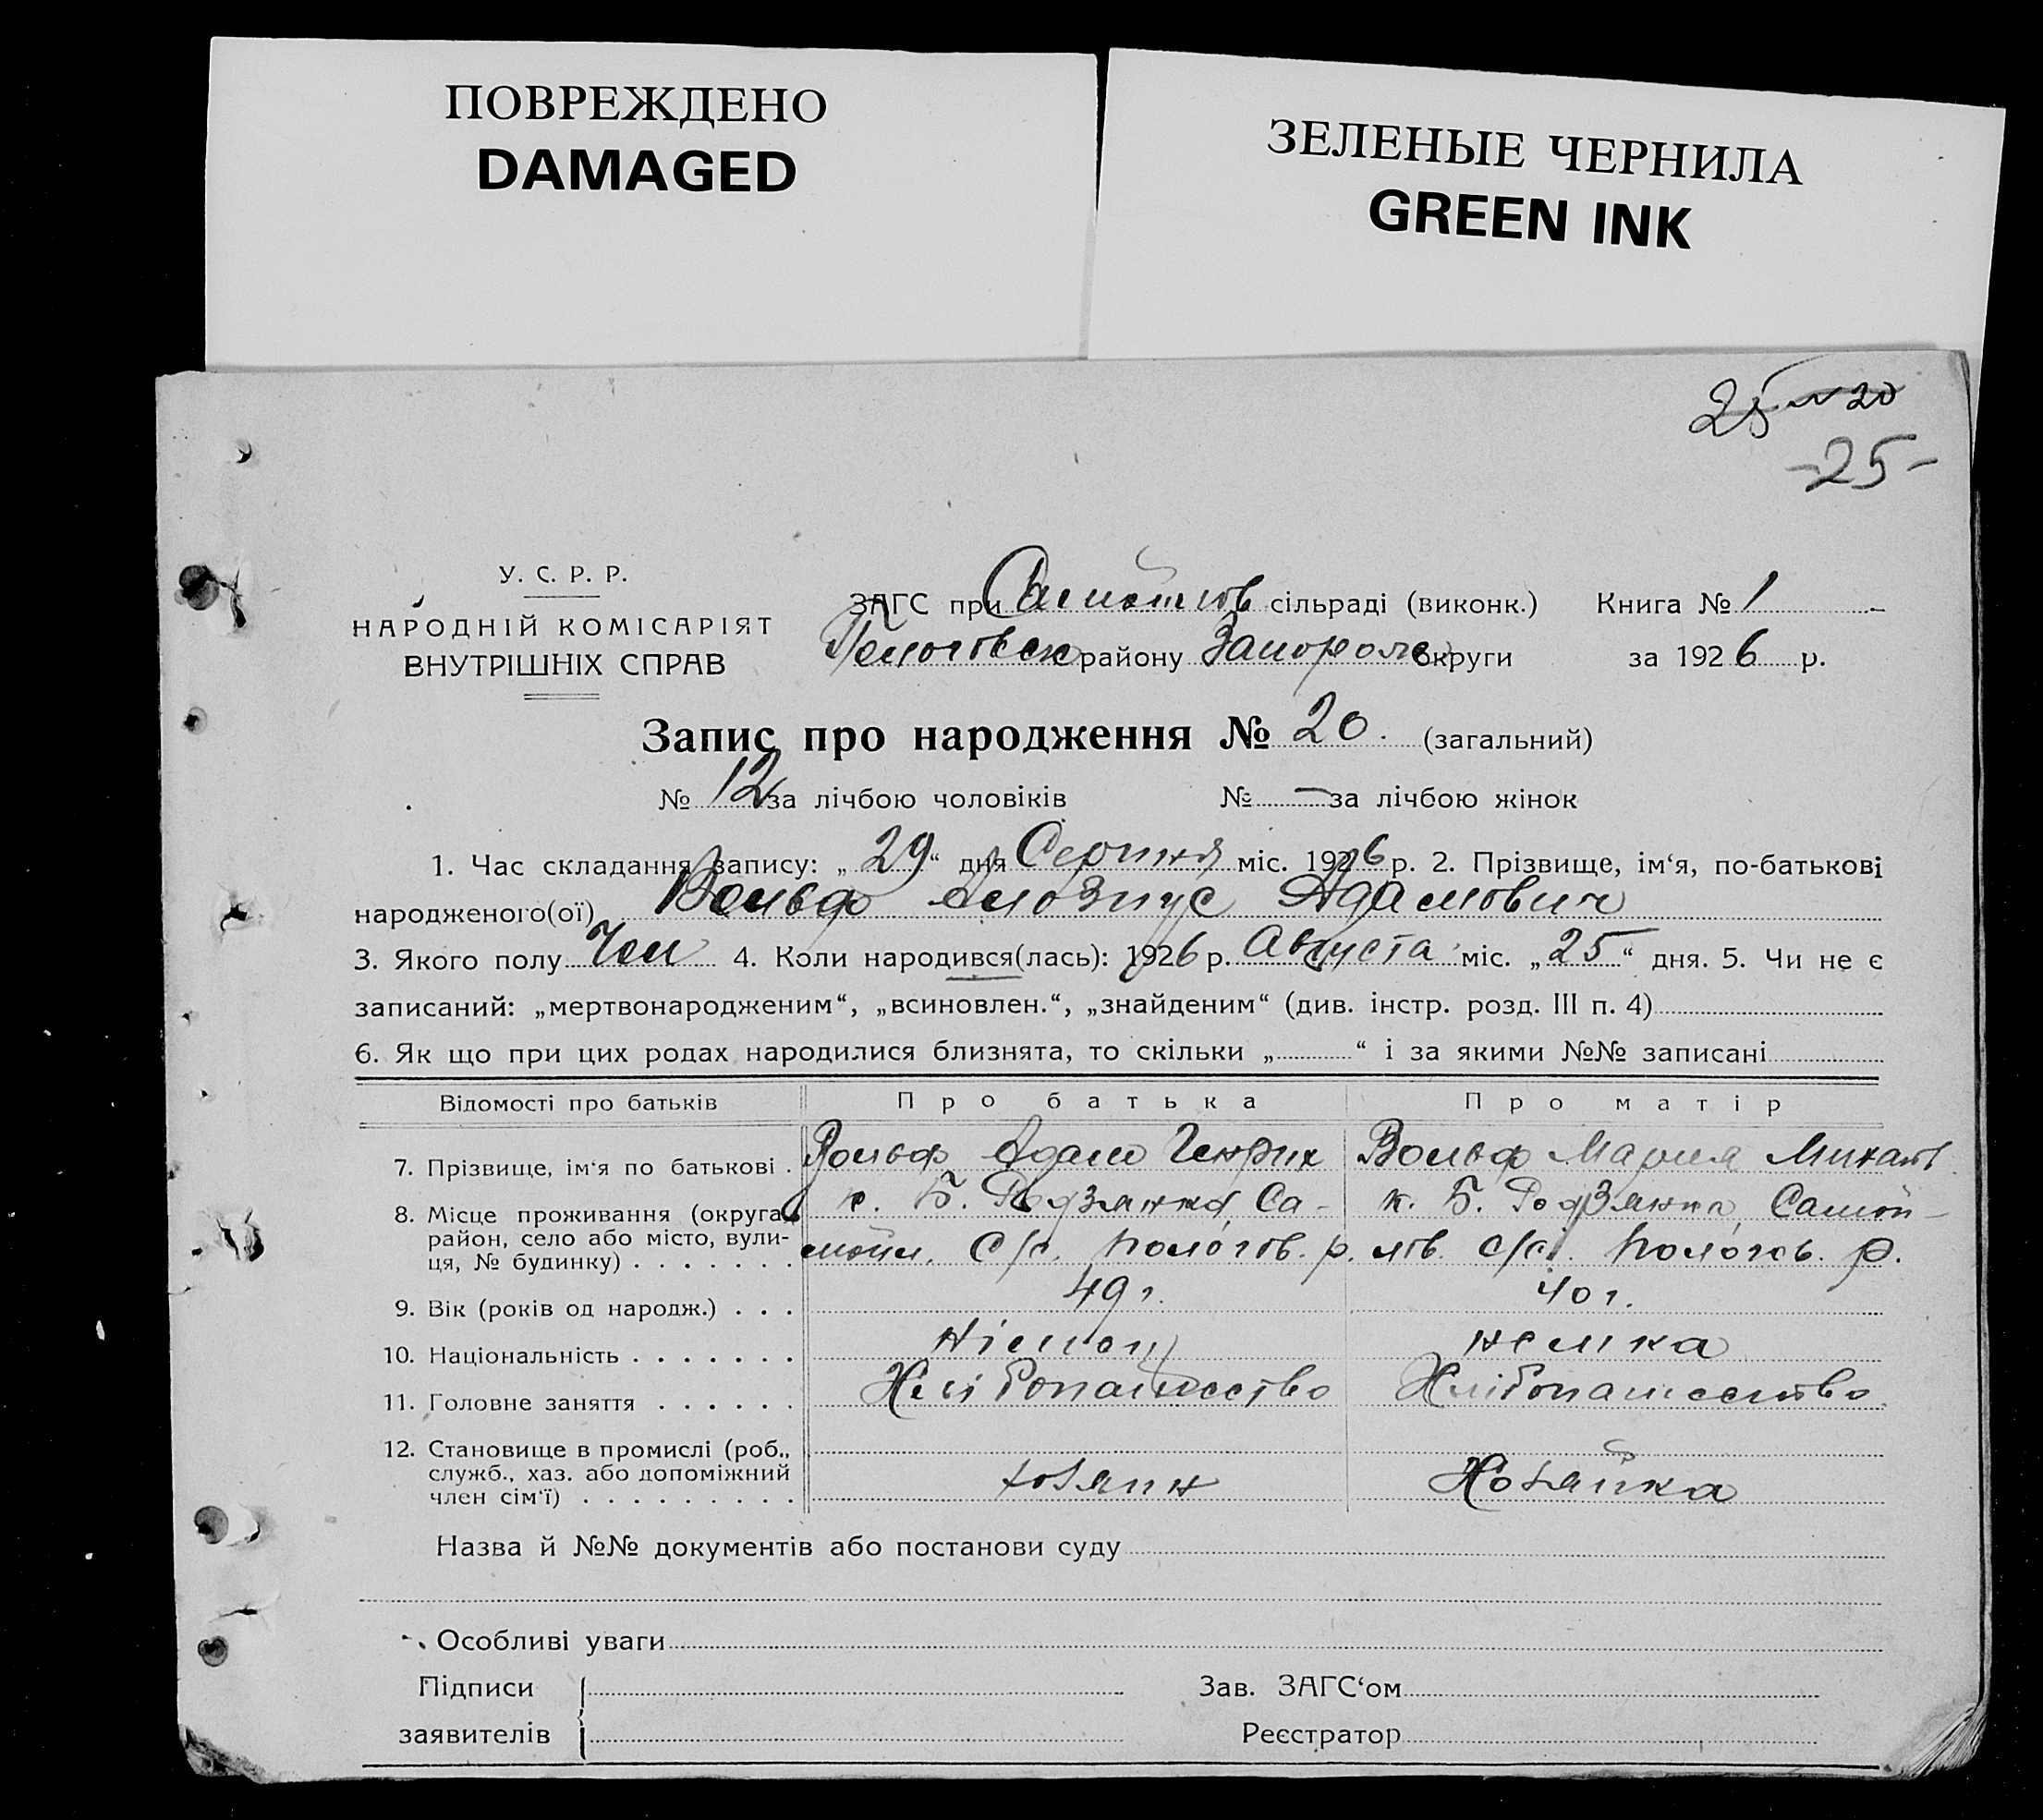 ПОВРЕЖДЕНО
DAMAGED
ЗЕЛЕНЫЕ ЧЕРНИЛА
GREEN INK
25 № 20
-25-
У. С. Р. Р.
НАРОДНІЙ КОМІСАРІЯТ
ВНУТРІШНІХ СПРАВ
ЗАГС при сільраді (виконк.) Книга № 1
Пологовск району Запорож округи за 1926 р.
Запис про народження № 20. (загальний)
№ 12 за лічбою чоловіків № — за лічбою жінок
1. Час складання запису: „29“ дня Серпня міс. 1926 р. 2. Прізвище, ім‘я, по-батькові
народженого(ої) Вольф Алозиус Адамович
3. Якого полу Чол 4. Коли народився(лась): 1926 р. Августа міс. „25“ дня. 5. Чи не є
записаний: „мертвонародженим“, „всиновлен.“, „знайденим“ (див. інстр. розд. III п. 4)
6. Як що при цих родах народилися близнята, то скільки „ “ і за якими №№ записані
Відомості про батьків Про батька Про матір
7. Прізвище, ім‘я по батькові . Вольф Адам Генрих Вольф Мария Михайл.
8. Місце проживання (округа, район, село або місто, вулиця, № будинку) . . . . . . . к. Б. Родзянка, Са- к. Б. Родзянка, Самой-
мойл. С/с. Пологов. р. лов. с/с. Пологов. р.
9. Вік (років од народж.) . . . 49 г. 40 г.
10. Національність . . . . . . . Німец немка
11. Головне заняття . . . . . . Хлібопашество Хлібопашество
12. Становище в промислі (роб., служб., хаз. або допоміжний член сім‘ї) . . . . . . . . . хозяин Хозяйка
Назва й №№ документів або постанови суду
Особливі уваги
Підписи Зав. ЗАГС‘ом
заявителів Реєстратор